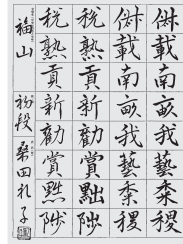 俶載南畝我藝黍稷
俶載南畝我藝黍稷
税熟貢新勸賞黜陟
税熟貢新勸賞黜陟
福山 初段 桑田礼子